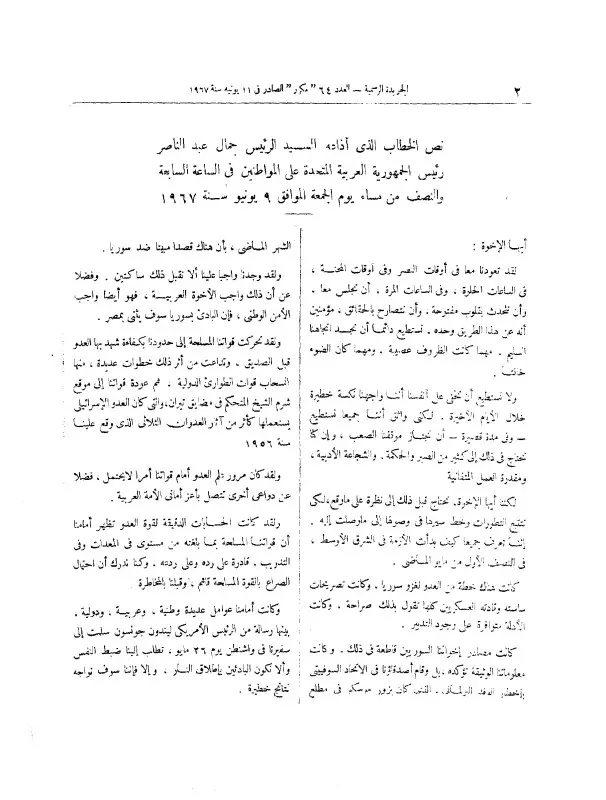 ٢
الجريدة الرسمية – العدد ٦٤ " مكرر " الصادر فى ١١ يونيه سنة ١٩٦٧
نص الخطاب الذى أذاعه السيد الرئيس جمال عبد الناصر
رئيس الجمهورية العربية المتحدة على المواطنين فى الساعة السابعة
والنصف من مساء يوم الجمعة الموافق ٩ يونيو سنة ١٩٦٧
أيها الإخوة :
لقد تعودنا معا فى أوقات النصر وفى أوقات المحنة ،
فى الساعات الحلوة ، وفى الساعات المرة . أن نجلس معا .
وأن نتحدث بقلوب مفتوحة . وأن نتصارح بالحقائق ، مؤمنين
أنه عن هذا الطريق وحده . نستطيع دائما أن نجد اتجاهنا
السليم . مهما كانت الظروف عصيبة . ومهما كان الضوء
خافتا .
ولا نستطيع أن نخفى على أنفسنا أننا واجهنا نكسة خطيرة
خلال الأيام الأخيرة . لكنى واثق أننا جميعا نستطيع
– وفى مدة قصيرة – أن نجتاز موقفنا الصعب ، وإن كنا
نحتاج فى ذلك إلى كثير من الصبر والحكمة . والشجاعة الأدبية ،
ومقدرة العمل المتفانية
لكننا أيها الإخوة . نحتاج قبل ذلك إلى نظرة على ما وقع ، لكى
نتتبع التطورات وخط سيرها فى وصولها إلى ما وصلت إليه .
إننا نعرف جميعا كيف بدأت الأزمة فى الشرق الأوسط ،
فى النصف الأول من مايو الماضى .
كانت هناك خطة من العدو لغزو سوريا . وكانت تصريحات
ساسته وقادته العسكريين كلها تقول بذلك صراحة . وكانت
الأدلة متوافرة على وجود التدبير .
كانت مصادر إخواننا السوريين قاطعة فى ذلك . وكانت
معلوماتنا الوثيقة تؤكده ، بل وقام أصدقاؤنا فى الاتحاد السوفييتى
بإخطار الوفد البرلمانى ، الذى كان يزور موسكو فى مطلع
الشهر الماضى ، بأن هناك قصدا مبيتا ضد سوريا .
ولقد وجدنا واجبا علينا ألا نقبل ذلك ساكتين . وفضلا
عن أن ذلك واجب الأخوة العربية ، فهو أيضا واجب
الأمن الوطنى ، فإن البادئ بسوريا سوف يثنى بمصر .
ولقد تحركت قواتنا المسلحة إلى حدودنا بكفاءة شهد بها العدو
قبل الصديق . وتداعت من أثر ذلك خطوات عديدة ، منها
انسحاب قوات الطوارئ الدولية . ثم عودة قواتنا إلى موقع
شرم الشيخ المتحكم فى مضايق تيران ، والتى كان العدو الإسرائيلى
يستعملها كأثر من آثار العدوان الثلاثى الذى وقع علينا
سنة ١٩٥٦
ولقد كان مرور علم العدو أمام قواتنا أمرا لا يحتمل ، فضلا
عن دواعى أخرى تتصل بأعز أمانى الأمة العربية .
ولقد كانت الحسابات الدقيقة لقوة العدو تظهر أمامنا
أن قواتنا المسلحة بما بلغته من مستوى فى المعدات وفى
التدريب . قادرة على رده وعلى ردعه . وكنا ندرك أن احتمال
الصراع بالقوة المسلحة قائم ، وقبلنا بالمخاطرة
وكانت أمامنا عوامل عديدة وطنية ، وعربية ، ودولية .
بينها رسالة من الرئيس الأمريكى ليندون جونسون سلمت إلى
سفيرنا فى واشنطن يوم ٢٦ مايو ، تطلب إلينا ضبط النفس
وألا نكون البادئين بإطلاق النار ، وإلا فإننا سوف نواجه
نتائج خطيرة .